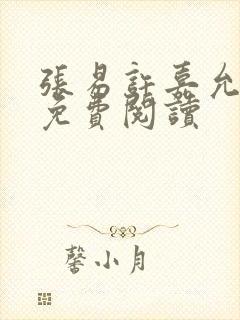 張易許嘉允
免費閱讀
馨小月